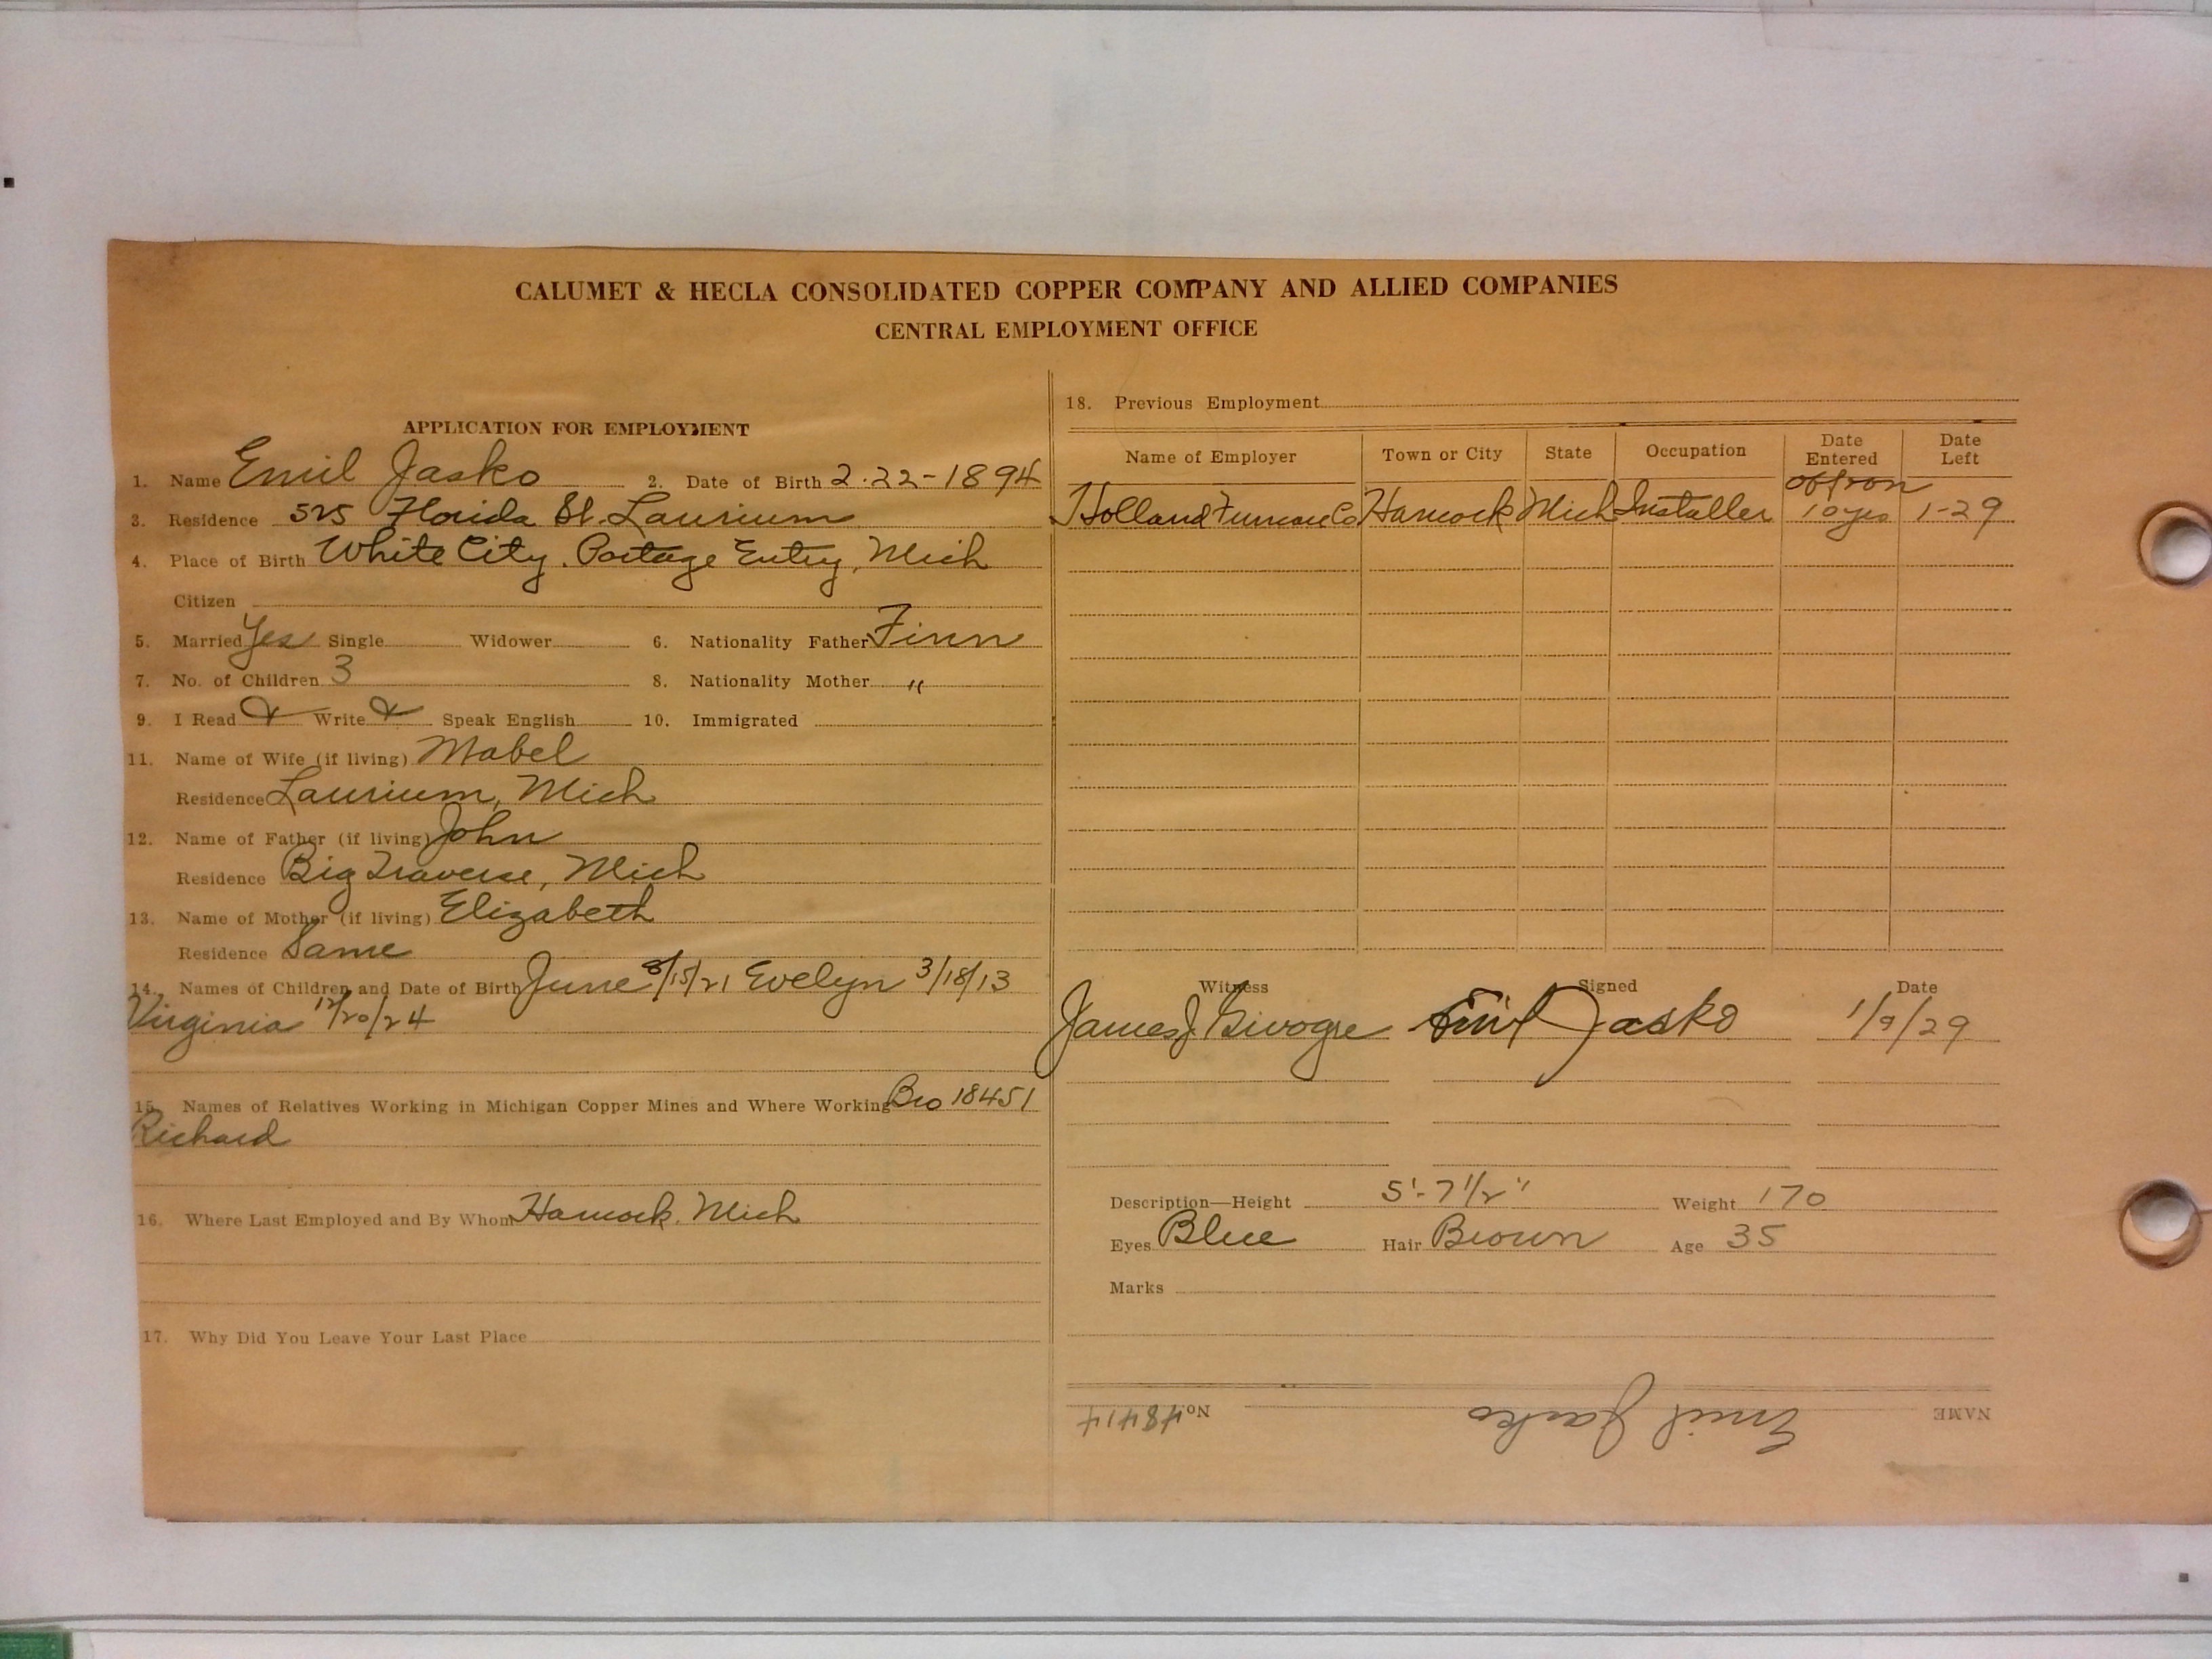 CALUMET & HECLA CONSOLIDATED COPPER COMPANY AND ALLIED COMPANIES
CENTRAL EMPLOYMENT OFFICE
APPLICATION FOR EMPLOYMENT
1. Name Emil Jasko 2. Date of Birth 2.22-1894
3. Residence 525 Florida St. Laurium
4. Place of Birth White City. Portage Entry, Mich
Citizen
5. Married Yes Single Widower 6. Nationality Father Finn
7. No. of Children 3 8. Nationality Mother "
9. I Read Write Speak English 10. Immigrated
11. Name of Wife (if living) Mabel
Residence Laurium, Mich
12. Name of Father (if living) John
Residence Big Traverse, Mich
13. Name of Mother (if living) Elizabeth
Residence Same
14. Names of Children and Date of Birth June 8/15/21 Evelyn 3/18/13
Virginia 12/20/24
15. Names of Relatives Working in Michigan Copper Mines and Where Working Bro 18451
Richard
16. Where Last Employed and By Whom Hancock. Mich
17. Why Did You Leave Your Last Place
18. Previous Employment
Name of Employer Town or City State Occupation Date Entered Date Left
off & on
Holland Furnace Co Hancock Mich Installer 10 yrs 1-29
Witness Signed Date
James J. Emil Jasko 1/9/29
Description—Height 5'-7 1/2" Weight 170
Eyes Blue Hair Brown Age 35
Marks
NAME Emil Jasko No 48414